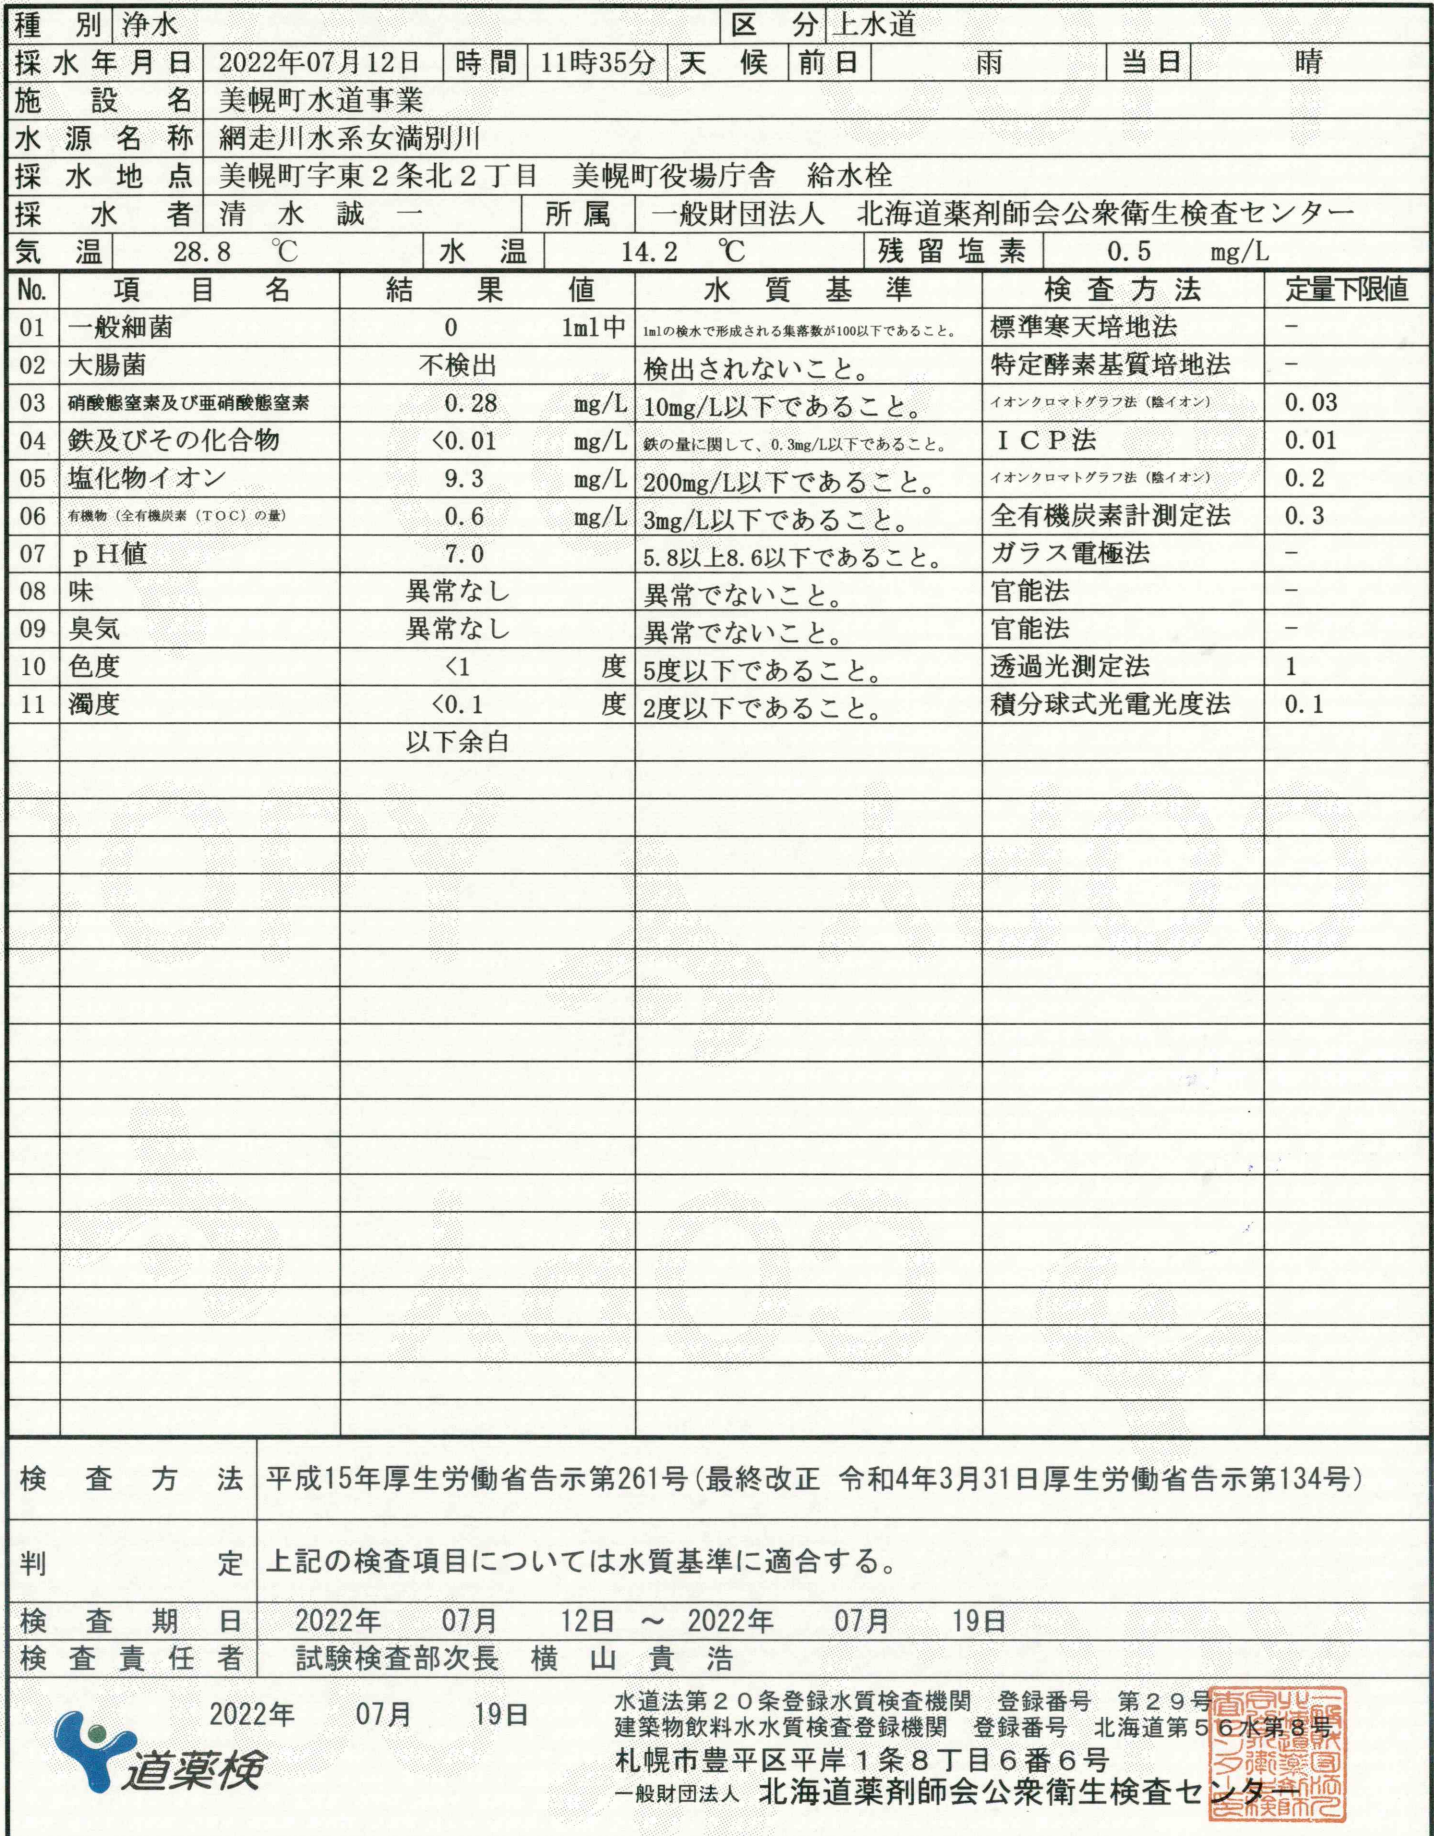 種別 浄水 区分 上水道
採水年月日 2022年07月12日 時間 11時35分 天候 前日 雨 当日 晴
施設名 美幌町水道事業
水源名称 網走川水系女満別川
採水地点 美幌町字東2条北2丁目 美幌町役場庁舎 給水栓
採水者 清水誠一 所属 一般財団法人 北海道薬剤師会公衆衛生検査センター
気温 28.8 ℃ 水温 14.2 ℃ 残留塩素 0.5 mg/L
No. 項目名 結果値 水質基準 検査方法 定量下限値
01 一般細菌 0 1ml中 1mlの検水で形成される集落数が100以下であること。 標準寒天培地法 −
02 大腸菌 不検出 検出されないこと。 特定酵素基質培地法 −
03 硝酸態窒素及び亜硝酸態窒素 0.28 mg/L 10mg/L以下であること。 イオンクロマトグラフ法(陰イオン) 0.03
04 鉄及びその化合物 <0.01 mg/L 鉄の量に関して、0.3mg/L以下であること。 ICP法 0.01
05 塩化物イオン 9.3 mg/L 200mg/L以下であること。 イオンクロマトグラフ法(陰イオン) 0.2
06 有機物(全有機炭素(TOC)の量) 0.6 mg/L 3mg/L以下であること。 全有機炭素計測定法 0.3
07 pH値 7.0 5.8以上8.6以下であること。 ガラス電極法 −
08 味 異常なし 異常でないこと。 官能法 −
09 臭気 異常なし 異常でないこと。 官能法 −
10 色度 <1 度 5度以下であること。 透過光測定法 1
11 濁度 <0.1 度 2度以下であること。 積分球式光電光度法 0.1
以下余白
検査方法 平成15年厚生労働省告示第261号(最終改正 令和4年3月31日厚生労働省告示第134号)
判定 上記の検査項目については水質基準に適合する。
検査期日 2022年 07月 12日 ～ 2022年 07月 19日
検査責任者 試験検査部次長 横山貴浩
2022年 07月 19日
道薬検
水道法第20条登録水質検査機関 登録番号 第29号
建築物飲料水水質検査登録機関 登録番号 北海道第56水第8号
札幌市豊平区平岸1条8丁目6番6号
一般財団法人 北海道薬剤師会公衆衛生検査センター
COPY
COPY
COPY